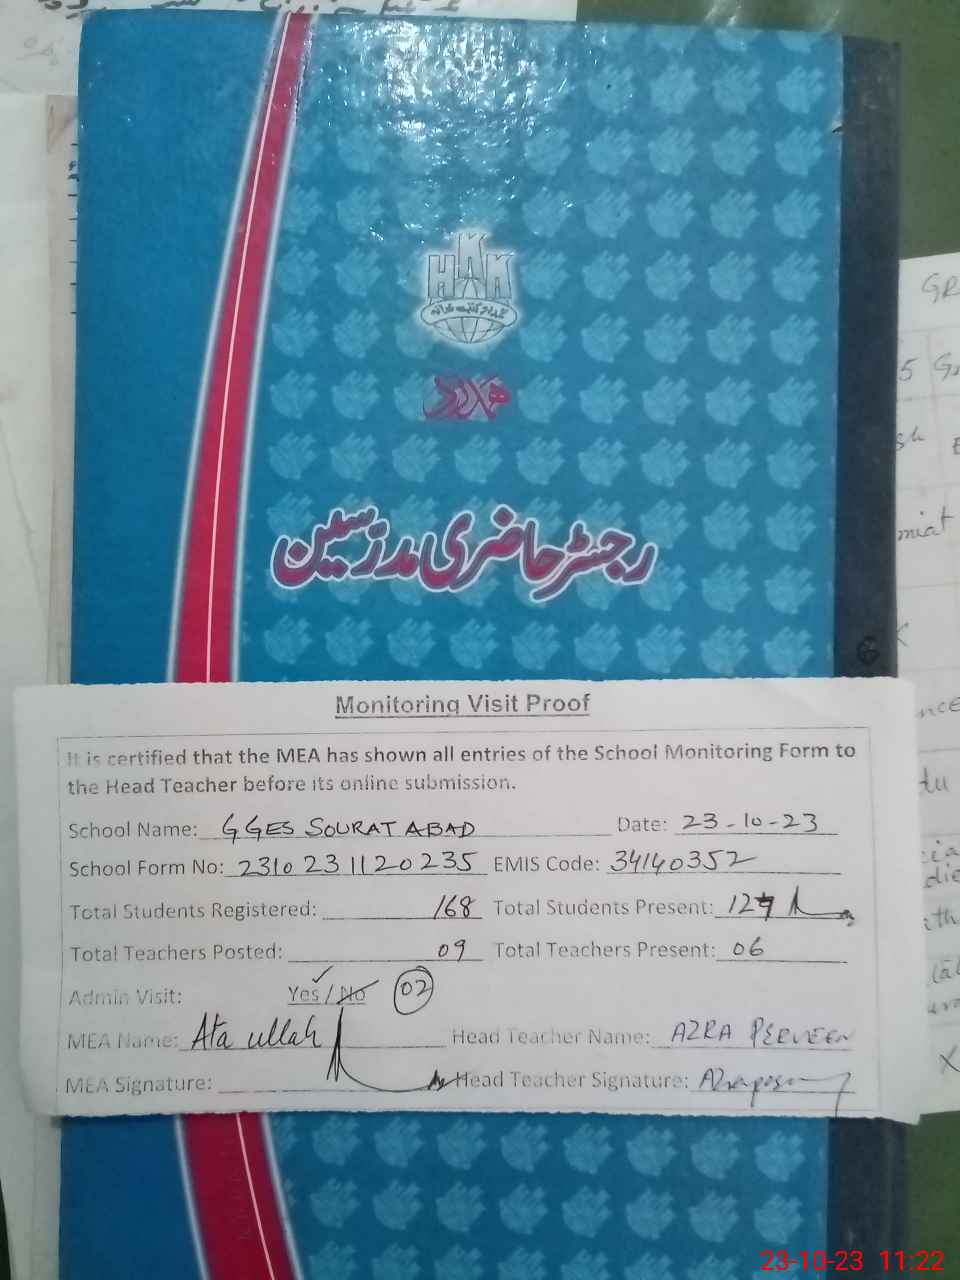 HAKK
ہمدرد کتب خانہ
ہمدرد
رجسٹر حاضری مدرسین
GR
5 G
sh
miat
nce
tu
cia
die
ath
Monitoring Visit Proof
It is certified that the MEA has shown all entries of the School Monitoring Form to
the Head Teacher before its online submission.
School Name: GGES SOURAT ABAD Date: 23-10-23
School Form No: 2310 23 11 20 235 EMIS Code: 34140352
Total Students Registered: 168 Total Students Present:
Total Teachers Posted: 09 Total Teachers Present: 06
Admin Visit: Yes / No 02
MEA Name: Ata ullah Head Teacher Name: AZRA PERVEEN
MEA Signature: Head Teacher Signature:
X
23-10-23 11:22